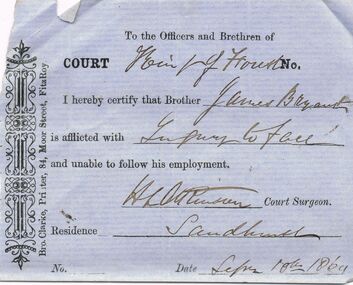 To the Officers and Brethren of
COURT No.
I hereby certify that Brother James Bryant
is afflicted with Injury to face
and unable to follow his employment.
Court Surgeon.
Residence Sandhurst
No. Date Sepr 10th 1869
Bro. Clarke, Printer, 84, Moor Street, FitzRoy